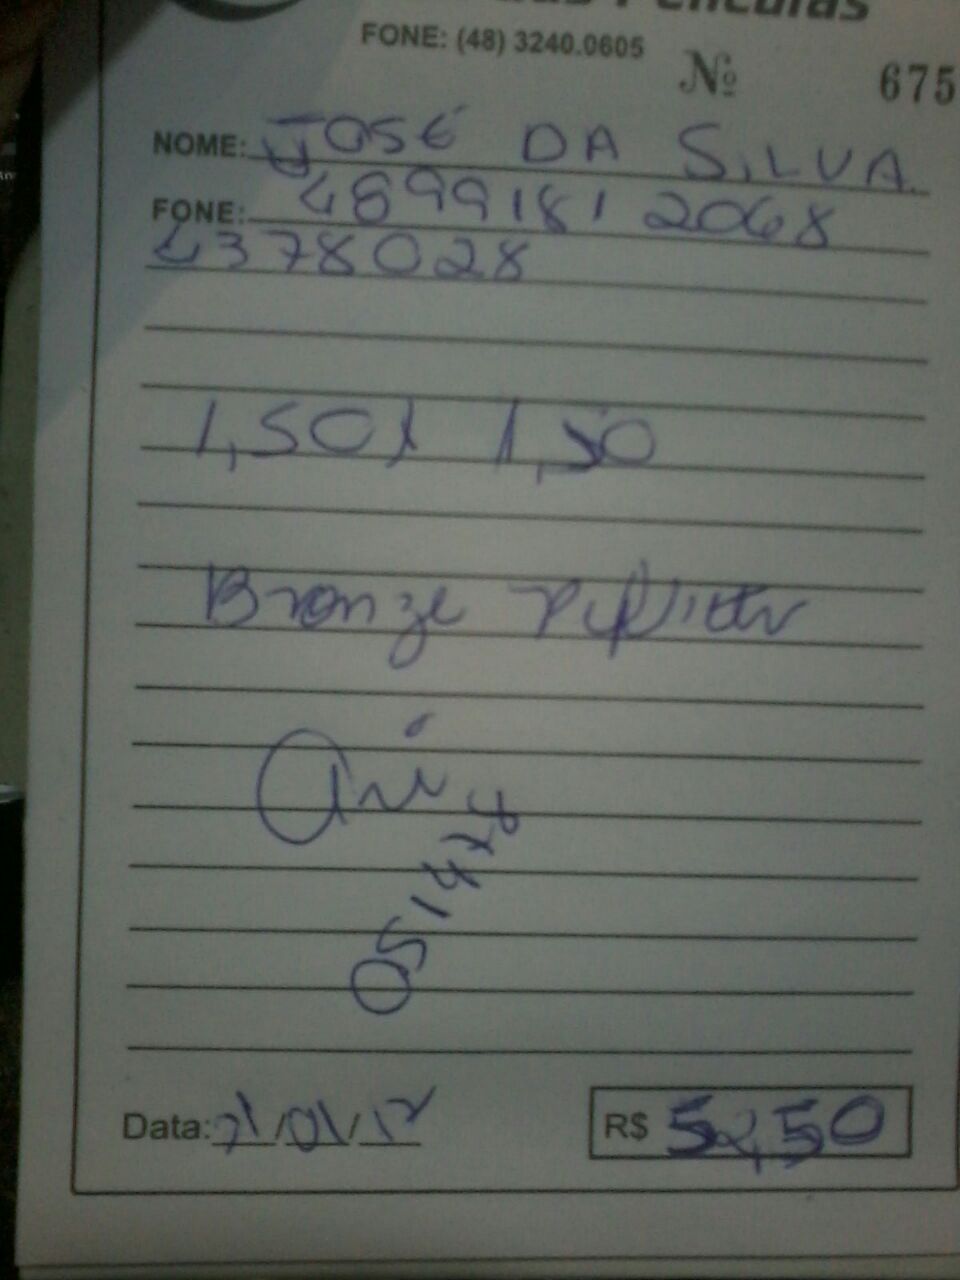 Películas
FONE: (48) 3240.0605
Nº 675
NOME: JOSÉ DA SILVA
FONE: 48991812068
4378028
1,50 x 1,50
Bronze
Data: 21/01/12
R$ 52,50